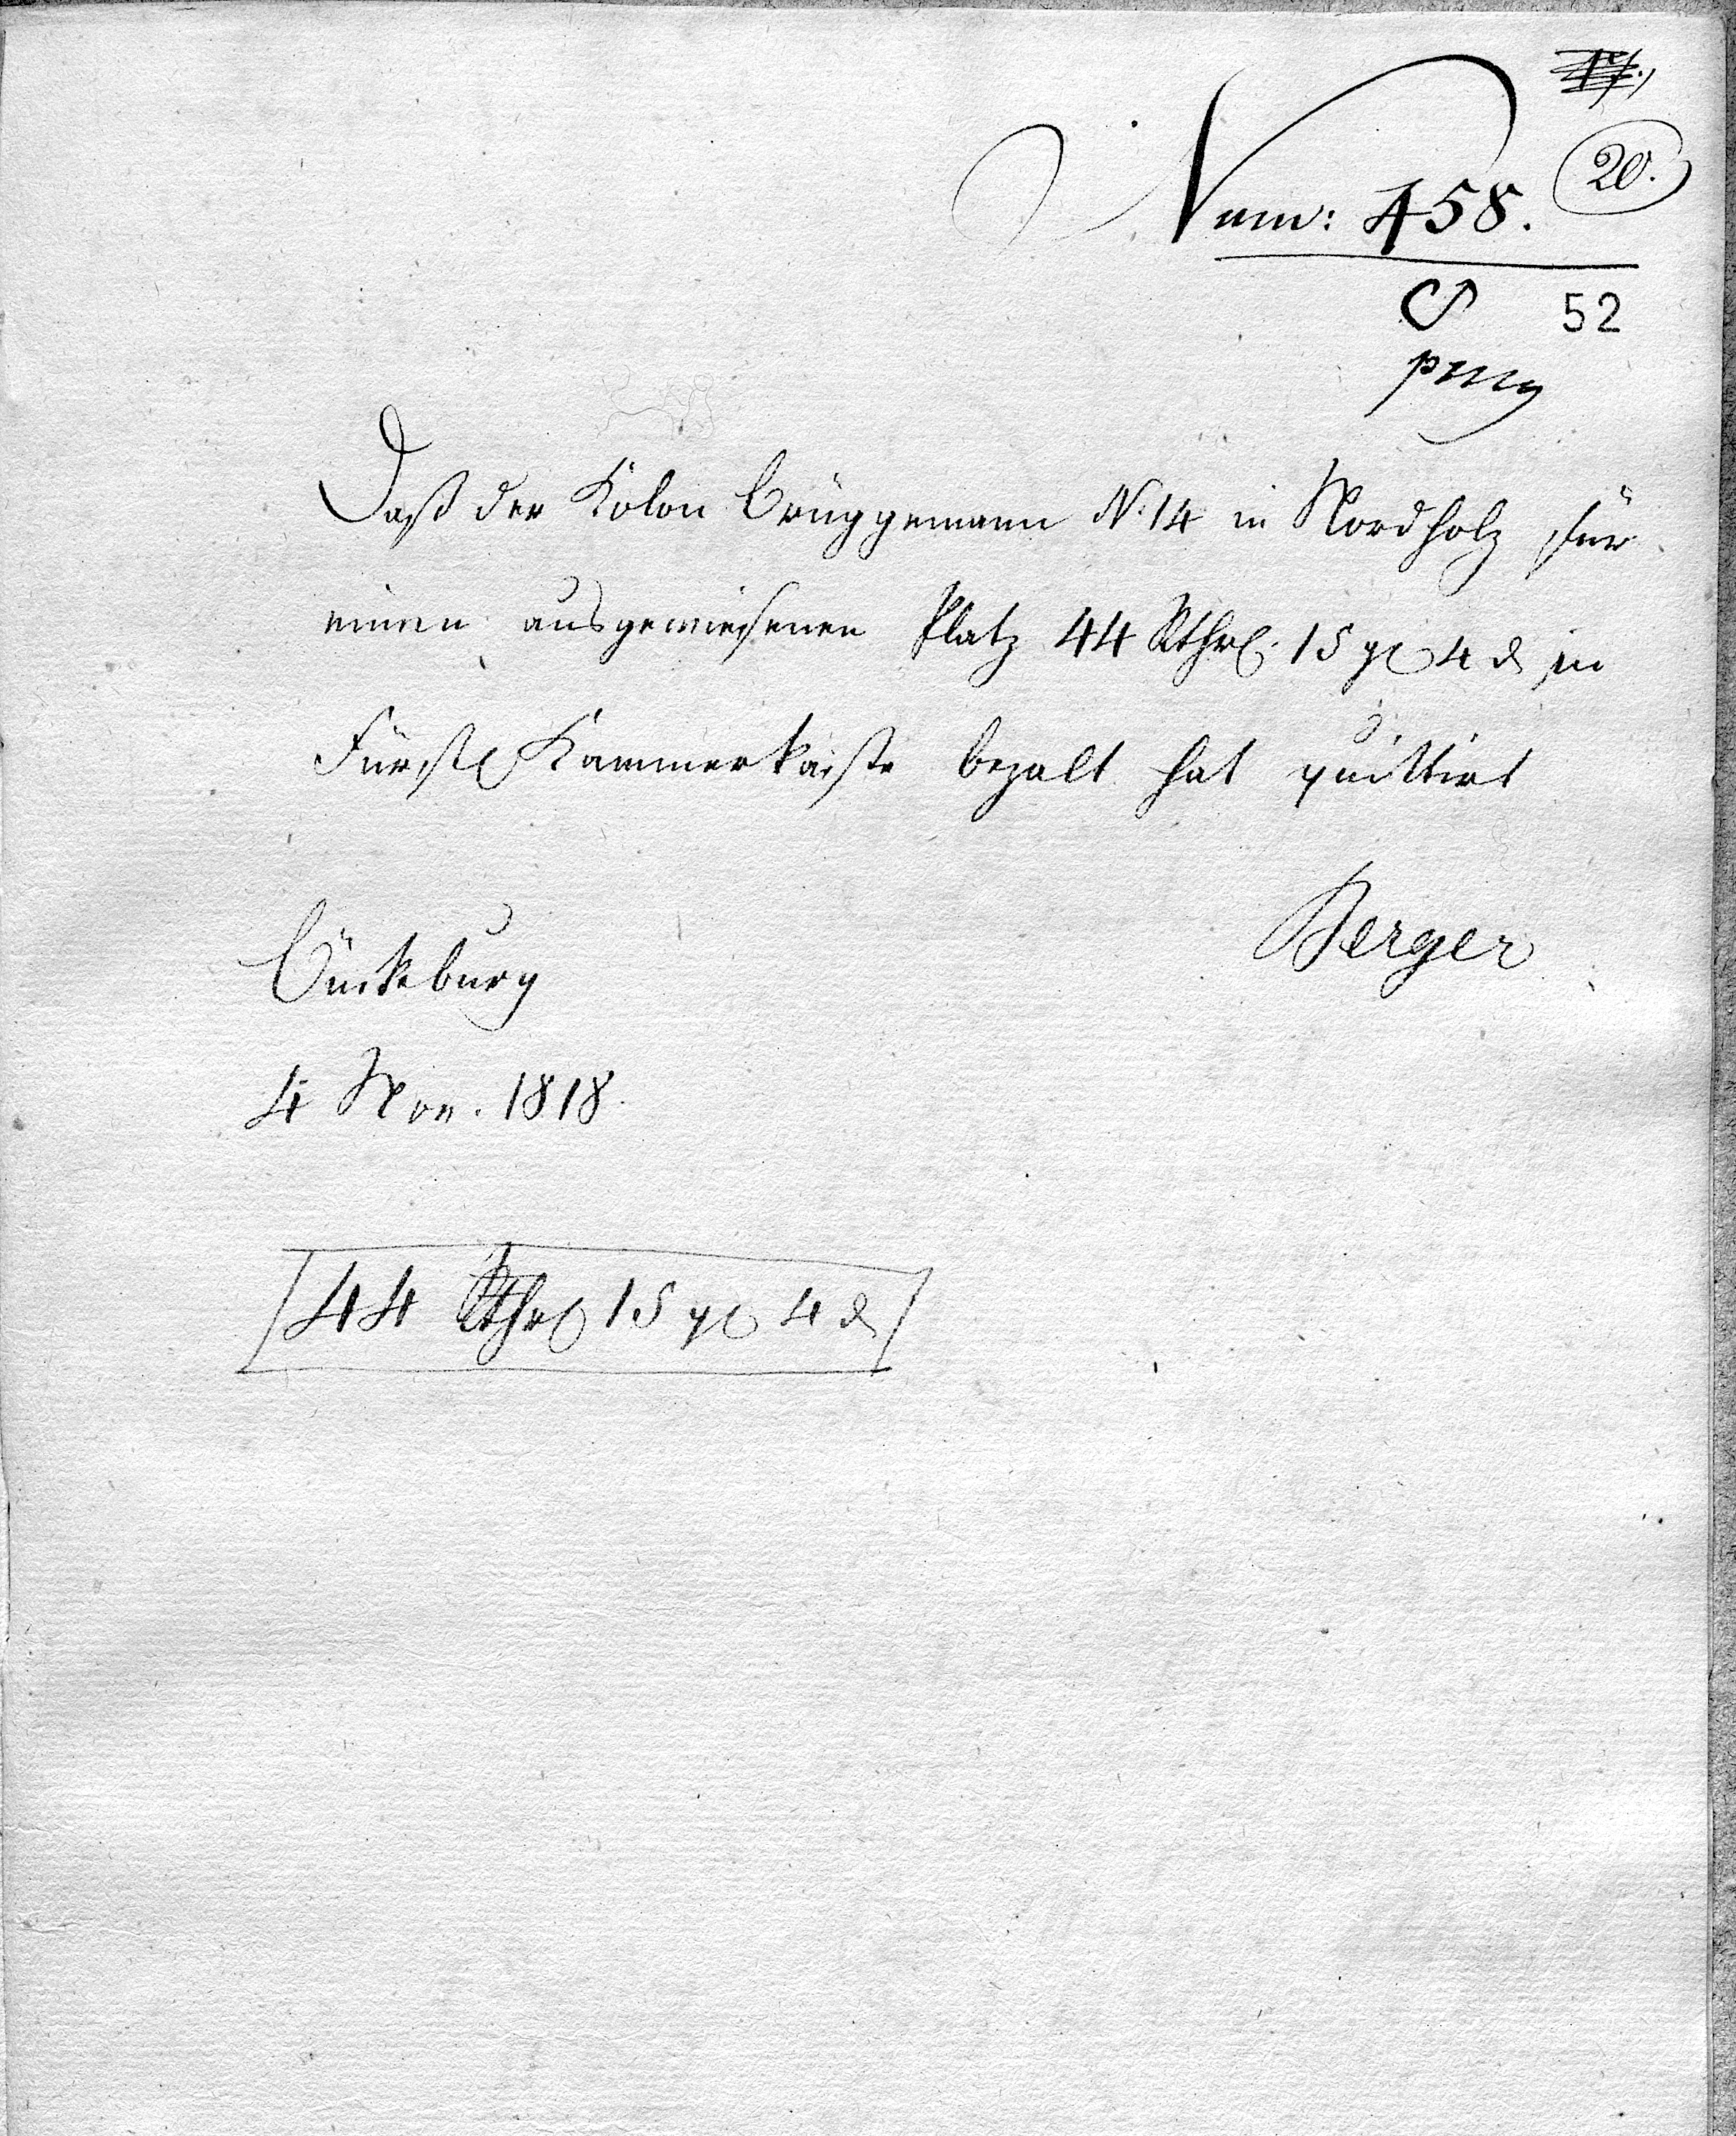 20.
Num: 458.
52
Daß der Kolon Brüggemann N. 14 in Nordholz für
einen ausgewiesenen Platz 44 Rthl. 15 gl 4 d in
Fürstl Kammerkasse bezalt hat quittirt
Berger
Bückeburg
4 Nov. 1818.
44 Rthl 15 gl 4 d